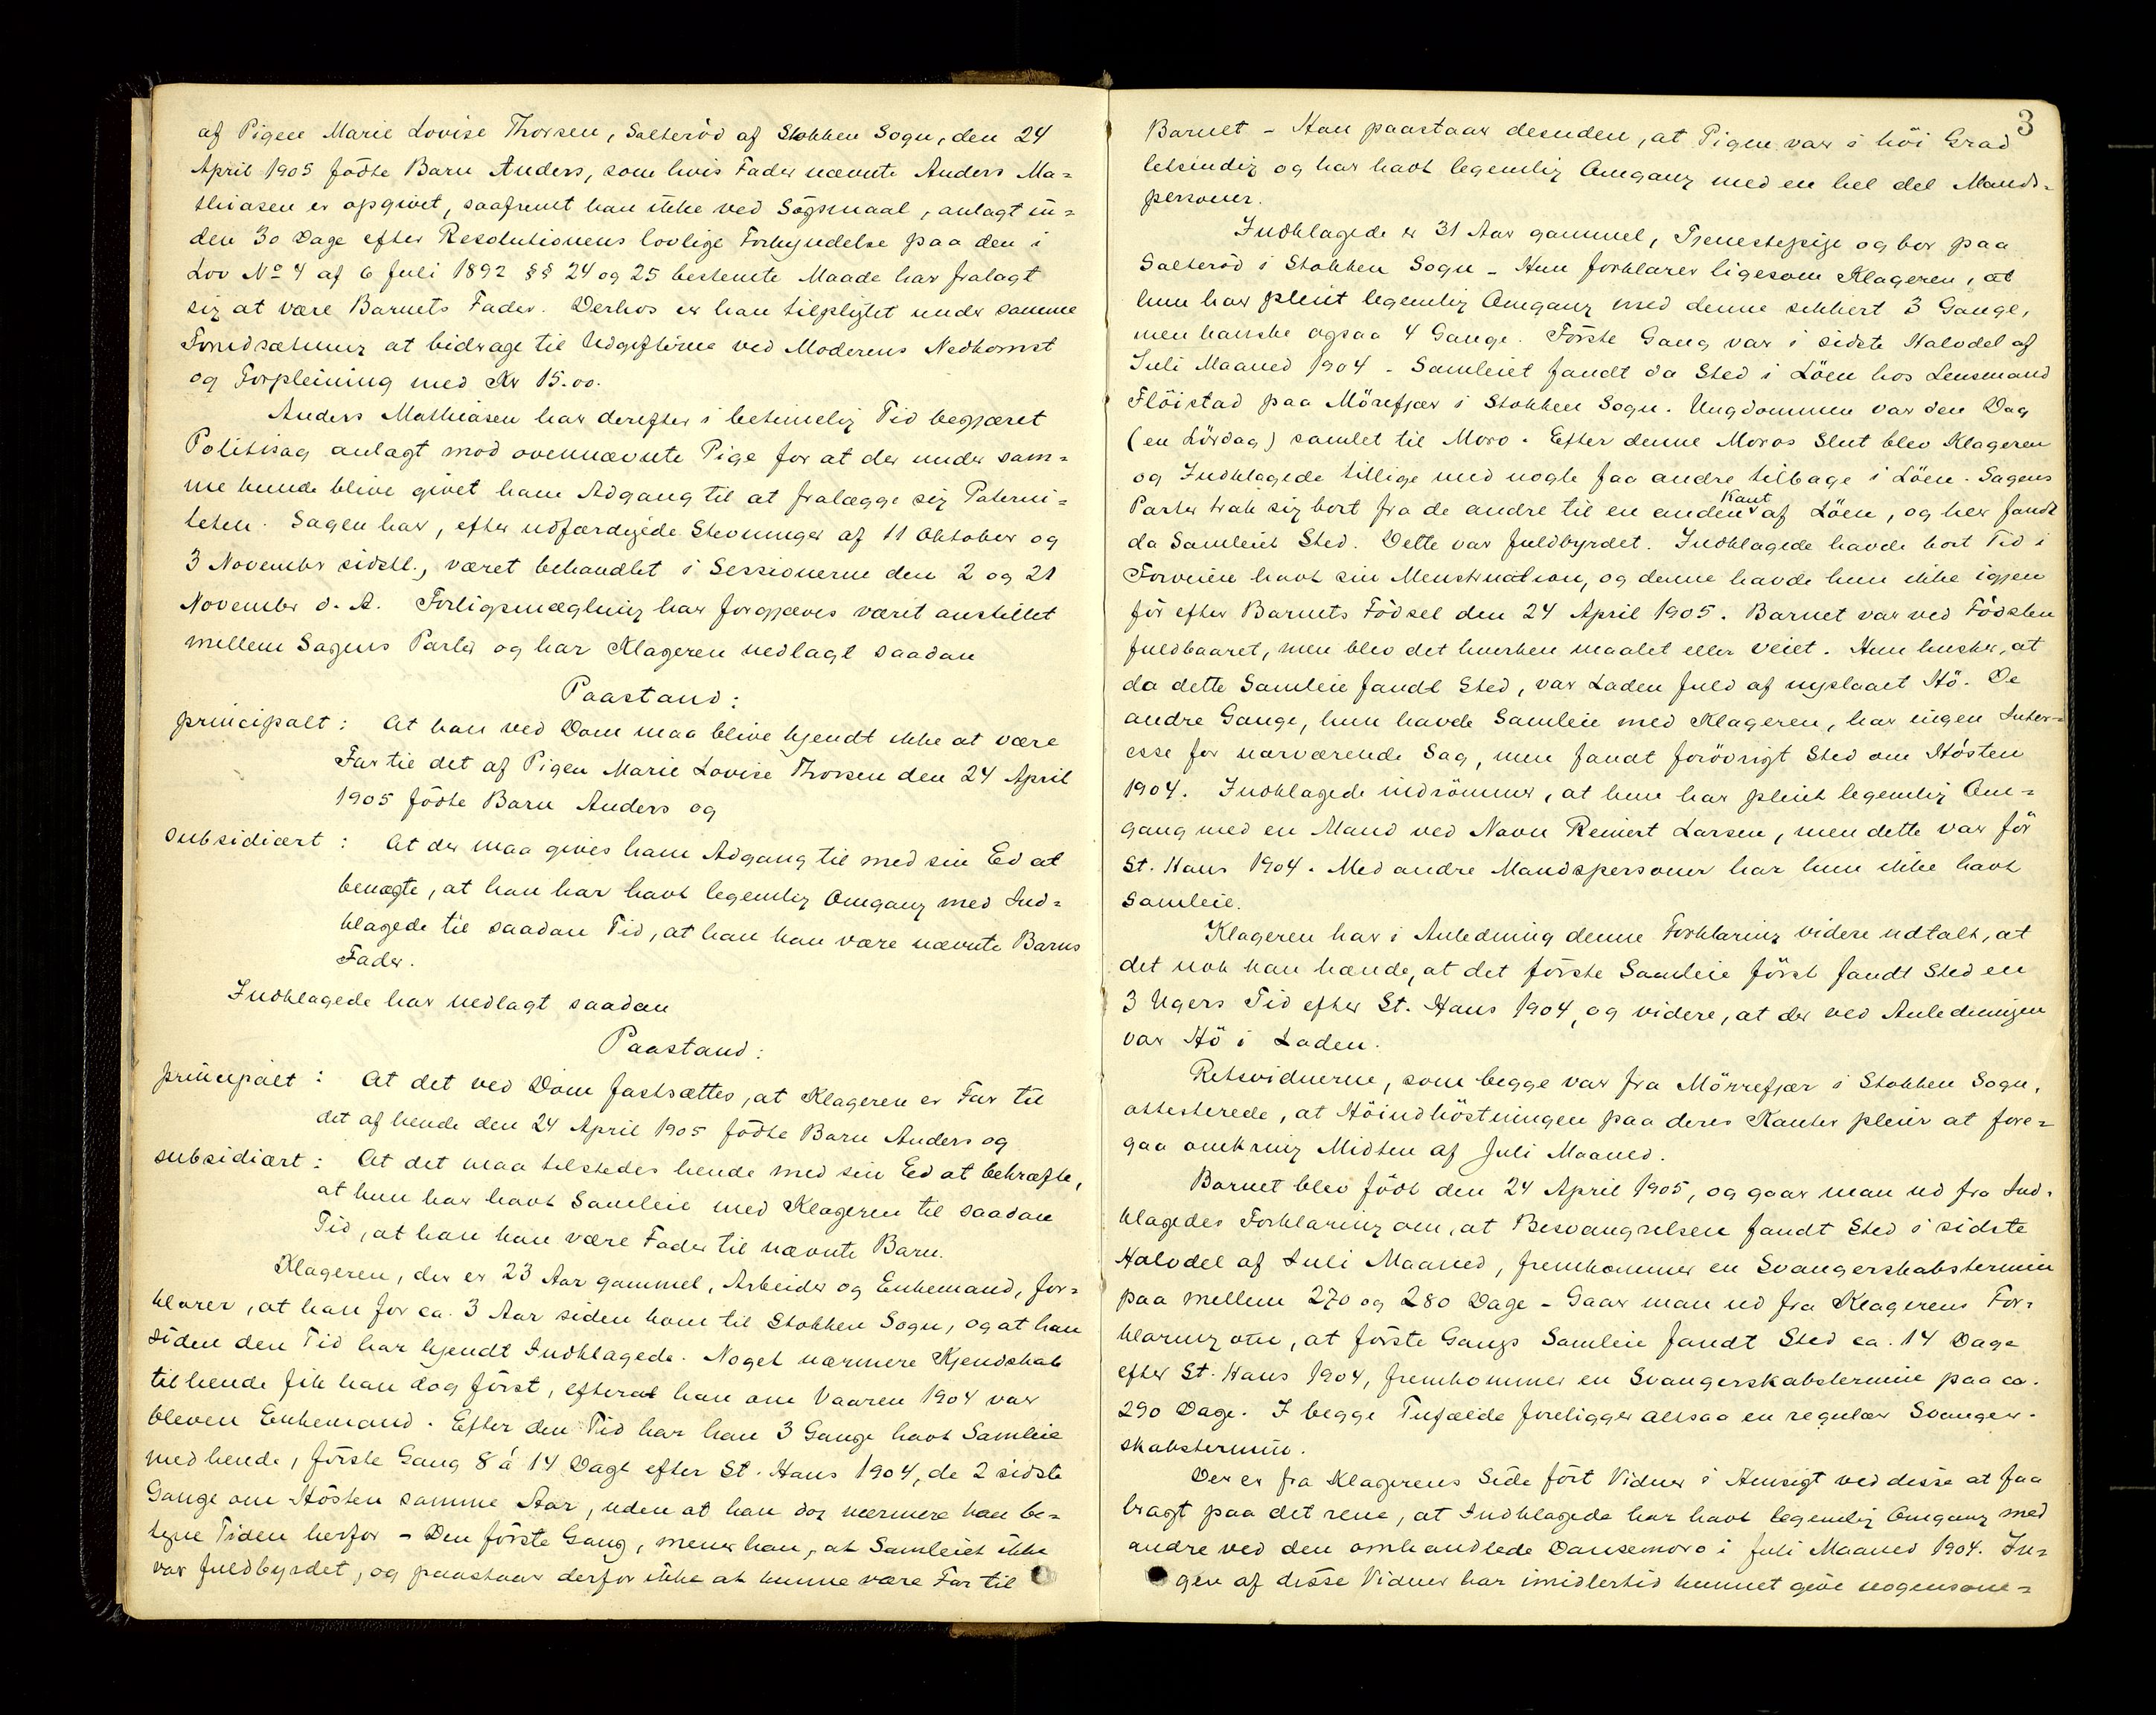 af Pigen Marie Lovise Thorsen, Salteröd af Stokken Sogn, den 24
April 1905 födte Barn Anders, som hvis Fader nævnte Anders Ma=
thiasen er opgivet, saafremt han ikke ved Sögsmaal, anlagt in=
den 30 Dage efter Resolutionens lovlige Forkyndelse paa den i
Lov No 4 af 6 Juli 1892 §§ 24 og 25 bestemte Maade har fralagt
sig at være Barnets Fader. Derhos er han tilpligtet under samme
Forudsætning at bidrage til Udgifterne ved Moderens Nedkomst
og Forpleining med Kr 15.00.
Anders Mathiasen har derefter i betimelig Tid begjæret
Politisag anlagt mod ovennævnte Pige for at der under sam=
me kunde blive givet ham Adgang til at fralægge sig Paterni=
teten. Sagen har, efter udfærdigede Stevninger af 11 Oktober og
3 November sidstl., været behandlet i Sessionerne den 2 og 21
November d. A. Forligsmægling har forgjæves været anstillet
mellem Sagens Parter og har Klageren nedlagt saadan
Paastand:
principalt: At han ved Dom maa blive kjendt ikke at være
Far til det af Pigen Marie Lovise Thorsen den 24 April
1905 födte Barn Anders og
subsidiært: At der maa gives ham Adgang til med sin Ed at
benægte, at han har havt legemlig Omgang med Ind=
klagede til saadan Tid, at han kan være nævnte Barns
Fader.
Indklagede har nedlagt saadan
Paastand:
principalt: At det ved Dom fastsættes, at Klageren er Far til
det af hende den 24 April 1905 födte Barn Anders og
subsidiært: At det maa tilstedes hende med sin Ed at bekræfte,
at hun har havt Samleie med Klageren til saadan
Tid, at han kan være Fader til nævnte Barn.
Klageren, der er 23 Aar gammel, Arbeider og Enkemand, for=
klarer, at han for ca. 3 Aar siden kom til Stokken Sogn, og at han
siden den Tid har kjendt Indklagede. Noget nærmere Kjendskab
til hende fik han dog först, efterat han om Vaaren 1904 var
bleven Enkemand. Efter den Tid har han 3 Gange havt Samleie
med hende, förste Gang 8 á 14 Dage efter St. Hans 1904, de 2 sidste
Gange om Hösten samme Aar, uden at han dog nærmere kan be=
tegne Tiden herfor - Den förste Gang, mener han, at Samleiet ikke
var fuldbyrdet, og paastaar derfor ikke at kunne være Far til
3
Barnet - Han paastaar desuden, at Pigen var i höi Grad
letsindig og har havt legemlig Omgang med en hel del Mands=
personer.
Indklagede er 31 Aar gammel, Tjenestepige og bor paa
Salteröd i Stokken Sogn - Hun forklarer ligesom Klageren, at
hun har pleiet legemlig Omgang med denne sikkert 3 Gange,
men kanske ogsaa 4 Gange. Förste Gang var i sidste Halvdel af
Juli Maaned 1904 - Samleiet fandt da Sted i Löen hos Lensmand
Flöistad paa Mörefjær i Stokken Sogn. Ungdommen var den Dag
(en Lördag) samlet til Moro. Efter denne Moros Slut blev Klageren
og Indklagede tillige med nogle faa andre tilbage i Löen. Sagens
Parter trak sig bort fra de andre til en anden Kant af Löen, og her fandt
da Samleiet Sted. Dette var fuldbyrdet. Indklagede havde kort Tid i
Forveien havt sin Menstruation, og denne havde hun ikke igjen
för efter Barnets Födsel den 24 April 1905. Barnet var ved Födslen
fuldbaaret, men blev det hverken maalet eller veiet. Hun husker, at
da dette Samleie fandt Sted, var Laden fuld af nyslaaet Hö. De
andre Gange, hun havde Samleie med Klageren, har ingen Inter=
esse for nærværende Sag, men fandt forövrigt Sted om Hösten
1904. Indklagede indrömmer, at hun har pleiet legemlig Om=
gang med en Mand ved Navn Reinert Larsen, men dette var för
St. Hans 1904. Med andre Mandspersoner har hun ikke havt
Samleie.
Klageren har i Anledning denne Forklaring videre udtalt, at
det nok kan hænde, at det förste Samleie först fandt Sted en
3 Ugers Tid efter St. Hans 1904, og videre, at der ved Anledningen
var Hö i Laden.
Retsvidnerne, som begge var fra Mörrefjær i Stokken Sogn,
attesterede, at Höindhöstningen paa deres Kanter pleier at fore=
gaa omkring Midten af Juli Maaned.
Barnet blev födt den 24 April 1905, og gaar man ud fra Ind=
klagedes Forklaring om, at Besvangrelsen fandt Sted i sidste
Halvdel af Juli Maaned, fremkommer en Svangerskabstermin
paa mellem 270 og 280 Dage - Gaar man ud fra Klagerens For=
klaring om, at förste Gangs Samleie fandt Sted ca. 14 Dage
efter St. Hans 1904, fremkommer en Svangerskabstermin paa ca.
290 Dage. I begge Tilfælde foreligger altsaa en regulær Svanger=
skabstermin.
Der er fra Klagerens Side fört Vidner i Hensigt ved disse at faa
bragt paa det rene, at Indklagede har havt legemlig Omgang med
andre ved den omhandlede Dansemoro i Juli Maaned 1904. In=
gen af disse Vidner har imidlertid kunnet give nogensom=